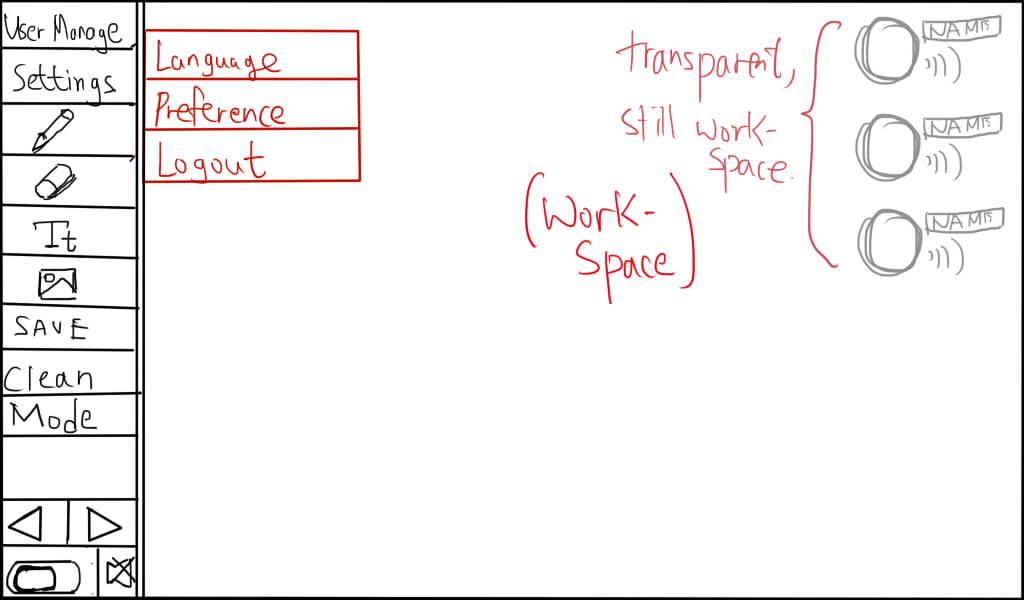 User Manage
Settings
Tt
SAVE
Clean
Mode
Language
Preference
Logout
(Work-
Space)
transparent,
still work-
space.
NAME
NAME
NAME